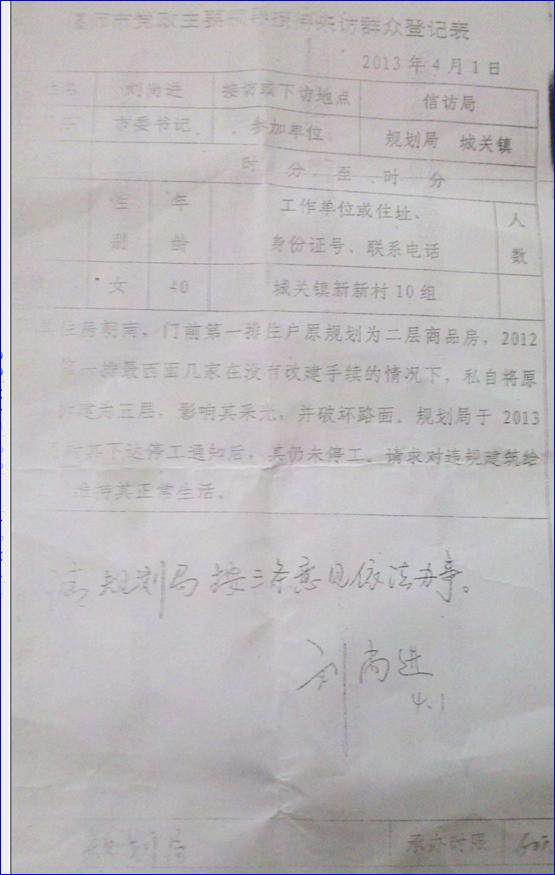 偃师市党政主要领导接待来访群众登记表
2013年4月1日
姓名 刘尚进 接访或下访地点 信访局
市委书记 参加单位 规划局 城关镇
时 分 至 时 分
性别 年龄 工作单位或住址、身份证号、联系电话 人数
女 40 城关镇新新村10组
住房朝南，门前第一排住户原规划为二层商品房，2012
第一排最西面几家在没有改建手续的情况下，私自将原
建为五层，影响其采光，并破坏路面。规划局于2013
对其下达停工通知后，其仍未停工。请求对违规建筑给
维持其正常生活。
请规划局按三条意见依法办事。
刘尚进
4.1
规划局 承办时限 60天